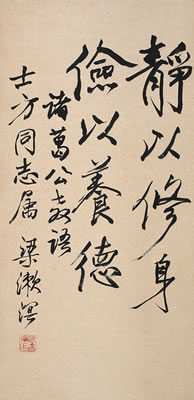 靜以修身
儉以養德
諸葛公教語
士方同志属
梁漱溟